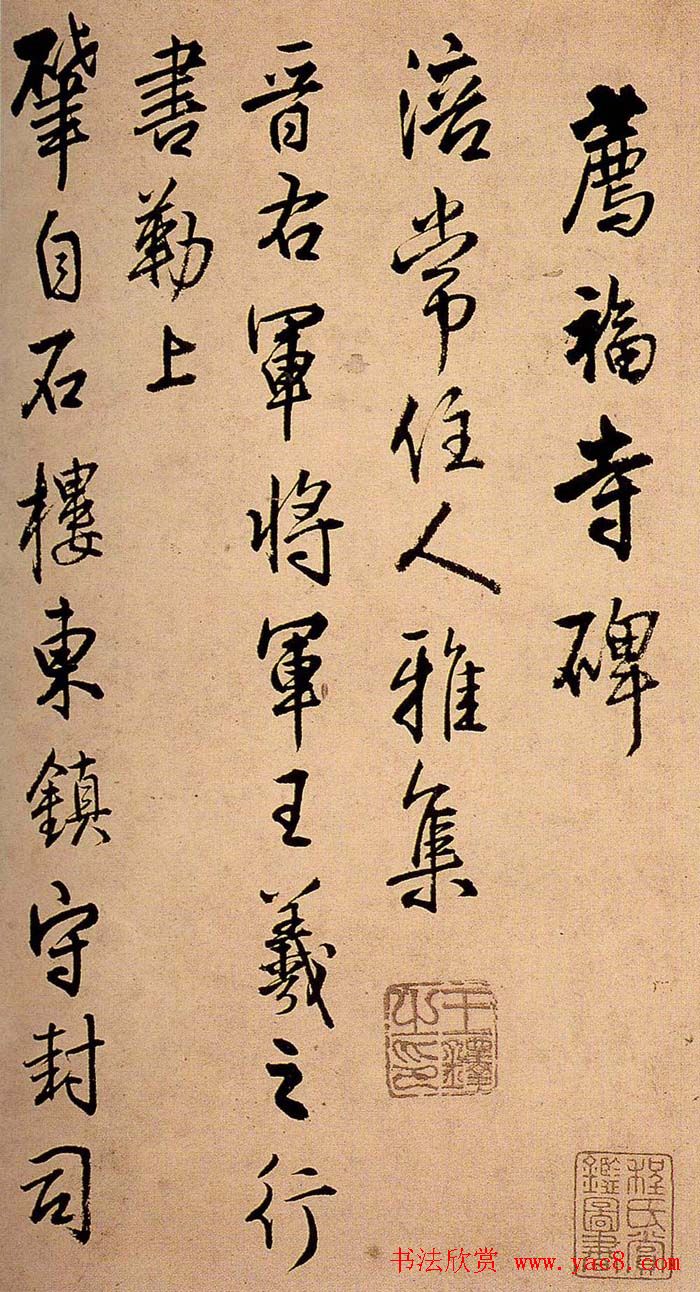 薦福寺碑
涪常住人雅集
晉右軍將軍王羲之行
書勒上
肇自石樓東鎮守封司
王鐸之印
程氏堂鑑圖書
书法欣赏 www.yac8.com